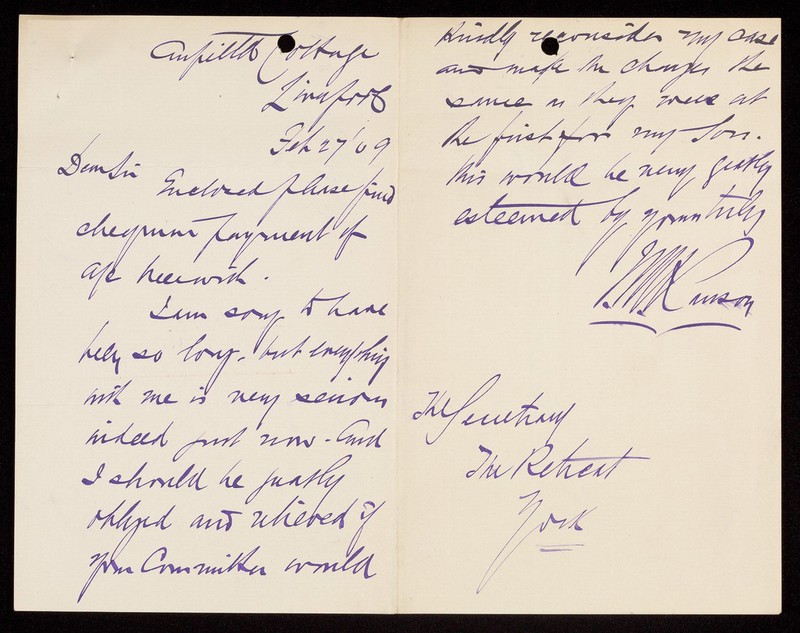 Cottage
Liverpool
Feb 27 '09
Dear Sir
Enclosed please find
cheque in payment of
a/c herewith.
I am sorry to have
been so long, but everything
with me is very serious
indeed just now. And
I should be greatly
obliged and relieved if
your Committee would
kindly reconsider my case
and make the charges the
same as they were at
the first for my son.
This would be very greatly
esteemed by yours truly
The Secretary
The Retreat
York